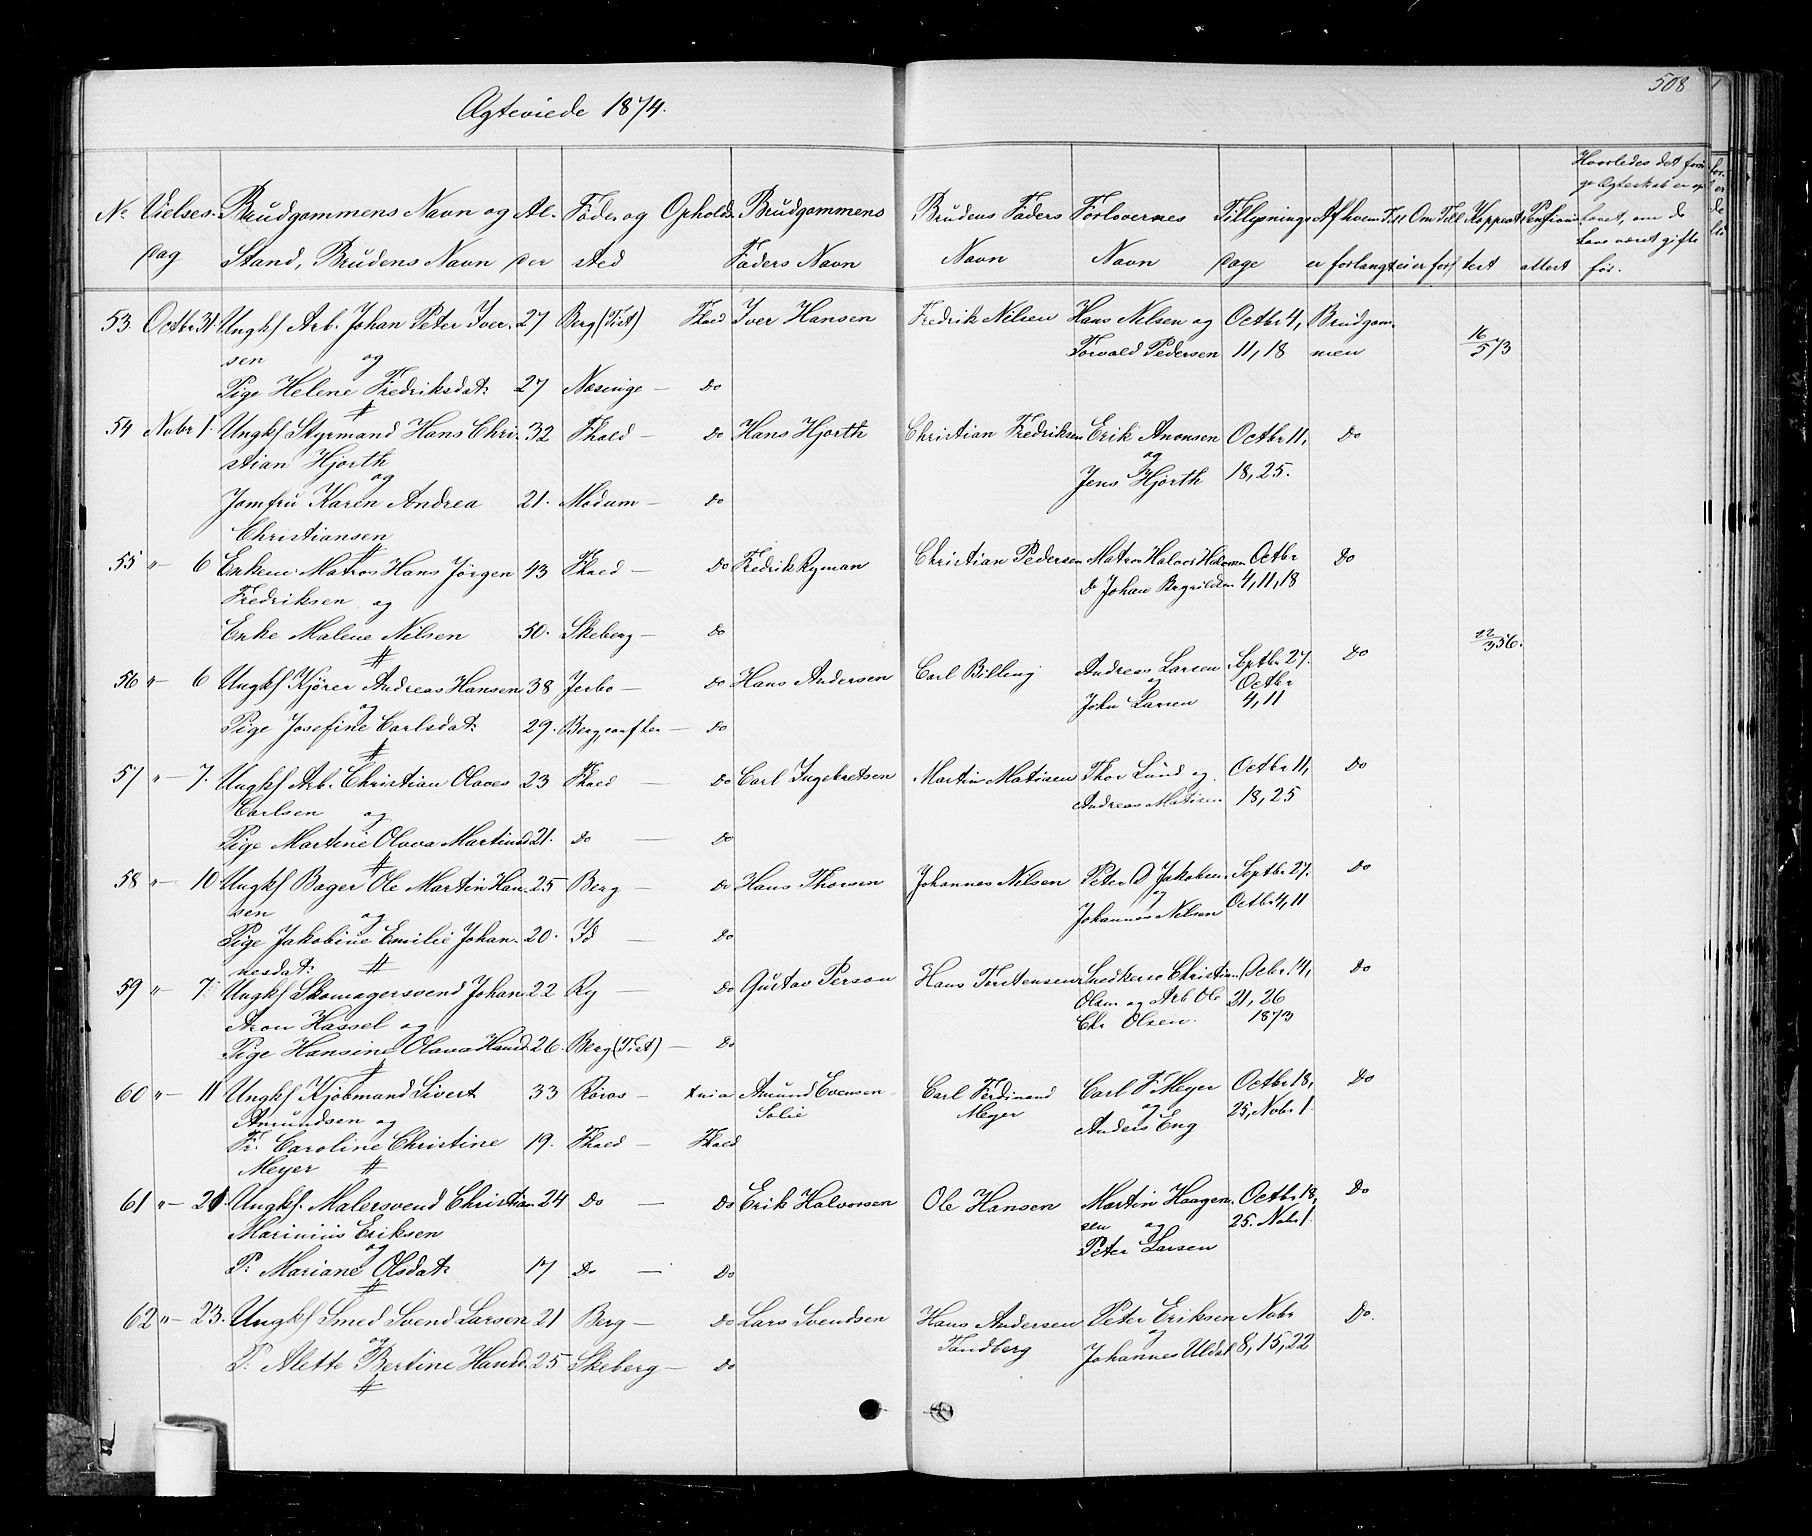 508
Ægteviede 1874.
No Vielses- Brudgommens Navn og Al- Føde og Opholds Brudgommens Brudens Faders Forlovernes Tillysnings Af hvem Till Om Till Koppeat Pensions Hvorledes det forri-
dag Stand, Brudens Navn der sted Faders Navn Navn Navn dage er forlangt ei er forl test attest ge Ægteskab er op
hævet, om de
have været gifte
før.
53. Octbr 31 Ungkf Arb. Johan Peter Iver- 27 Berg (Tist) Fhald Iver Hansen Fredrik Nilsen Hans Nilsen og Octbr 4, Brudgom- 16/5 73
sen og Torvald Pedersen 11, 18 men
Pige Helene Fredriksdat: 27 Næsinge — Do
54 Novbr 1. Ungkf Styrmand Hans Chri- 32 Fhald — Do Hans Hjorth Christian Fredriksen Erik Anonsen Octbr 11, Do
stian Hjorth og og 18, 25.
Jens Hjorth
Jomfru Karen Andrea 21. Modum — Do
Christiansen
55 " — 6 Enkem. Matros Hans Jörgen 43 Fhald — Do Fredrik Ryman Christian Pedersen Matros Halvor Halvorsen Octbr Do
Fredriksen og Do Johan 4, 11, 18
Enke Malene Nilsen 50. Skeberg — Do 22/3 56.
56 " — 6 Ungkf Kjører Andreas Hansen 38 Jerbo — Do Hans Andersen Carl Billing Andreas Larsen Septbr 27. Do
og og Octbr
Pige Josefine Carlsdat: 29. Berg — Do John Larsen 4, 11
57 " — 7. Ungkf Arb. Christian Olaves 23 Fhald — Do Carl Ingebretsen Martin Matisen Thor Lund og Octbr 11, Do
Carlsen og Andreas Matisen 18, 25
Pige Martine Olava Martinsd 21. Do — Do
58 " — 10 Ungkf Bager Ole Martin Han- 25 Berg — Do Hans Thorsen Johannes Nilsen Peter O Jakobsen Septbr 27. Do
sen og og Octbr 4, 11
Johannes Nilsen
Pige Jakobine Emilie Johan- 20. Id — Do
nesdat:
59 " — 7. Ungkf Skomagersvend Johan 22 Ry — Do Gustav Person Hans Torstensen Snedkersv Christian Octbr 14, Do
Aron Hassel og Olsen og Arb Ole 21, 26
Chr Olsen. 1873
Pige Hansine Olava Hansd. 26. Berg (Tist) — Do
60 " — 11 Ungkf Kjøbmand Sivert 33 Røros — Amund Evensen Carl Ferdinand Carl F Meyer Octbr 18, Do
Amundsen og Solie Meyer og 25, Nobr 1.
Anders Eng
Fr. Caroline Christine 19. Fhald — Fhald
Meyer
61 " — 21. Ungkf. Malersvend Christian 24 Do — Do Erik Halvorsen Ole Hansen Martin Haagen- Octbr 18, Do
Marinius Eriksen sen og 25. Nobr 1
og Peter Larsen
P. Mariane Olsdat: 17 Do — Do
62 " — 23. Ungkf Smed Svend Larsen 21 Berg — Do Lars Svendsen Hans Andersen Peter Eriksen Nobr Do.
og Tandberg og 8, 15, 22
P. Alette Bertine Hansd. 25 Skeberg — Do Johannes Uldal